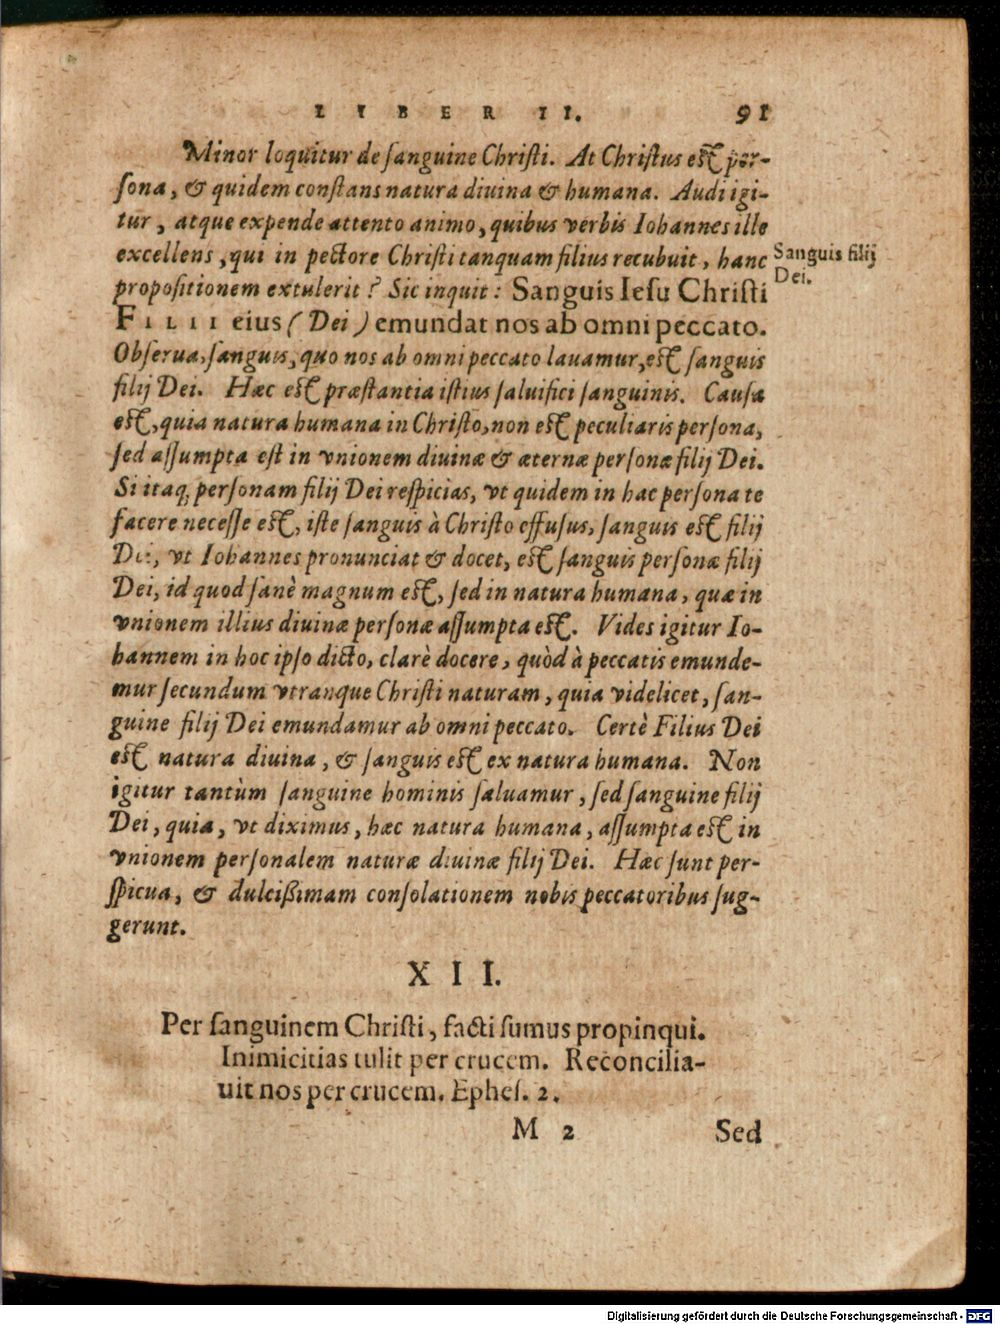 LIBER II. 91
Minor loquitur de ſanguine Chriſti. At Chriſtus eſt per-
ſona, & quidem conſtans natura diuina & humana. Audi igi-
tur, atque expende attento animo, quibus verbis Iohannes ille
excellens, qui in pectore Chriſti tanquam filius recubuit, hanc
Sanguis filij
Dei.
propoſitionem extulerit? Sic inquit: Sanguis Ieſu Chriſti
FILII eius (Dei) emundat nos ab omni peccato.
Obſerua, ſanguis, quo nos ab omni peccato lauamur, eſt ſanguis
filij Dei. Hæc eſt præſtantia iſtius ſaluifici ſanguinis. Cauſa
eſt, quia natura humana in Chriſto, non eſt peculiaris perſona,
ſed aſſumpta eſt in vnionem diuinæ & æternæ perſonæ filij Dei.
Si itaq; perſonam filij Dei reſpicias, vt quidem in hac perſona te
facere neceſſe eſt, iſte ſanguis à Chriſto effuſus, ſanguis eſt filij
Dei, vt Iohannes pronunciat & docet, eſt ſanguis perſonæ filij
Dei, id quod ſanè magnum eſt, ſed in natura humana, quæ in
vnionem illius diuinæ perſonæ aſſumpta eſt. Vides igitur Io-
hannem in hoc ipſo dicto, clarè docere, quòd à peccatis emunde-
mur ſecundum vtranque Chriſti naturam, quia videlicet, ſan-
guine filij Dei emundamur ab omni peccato. Certè Filius Dei
eſt natura diuina, & ſanguis eſt ex natura humana. Non
igitur tantùm ſanguine hominis ſaluamur, ſed ſanguine filij
Dei, quia, vt diximus, hæc natura humana, aſſumpta eſt in
vnionem perſonalem naturæ diuinæ filij Dei. Hæc ſunt per-
ſpicua, & dulcißimam conſolationem nobis peccatoribus ſug-
gerunt.
XII.
Per ſanguinem Chriſti, facti ſumus propinqui.
Inimicitias tulit per crucem. Reconcilia-
uit nos per crucem. Epheſ. 2.
M 2 Sed
Digitalisierung gefördert durch die Deutsche Forschungsgemeinschaft - DFG